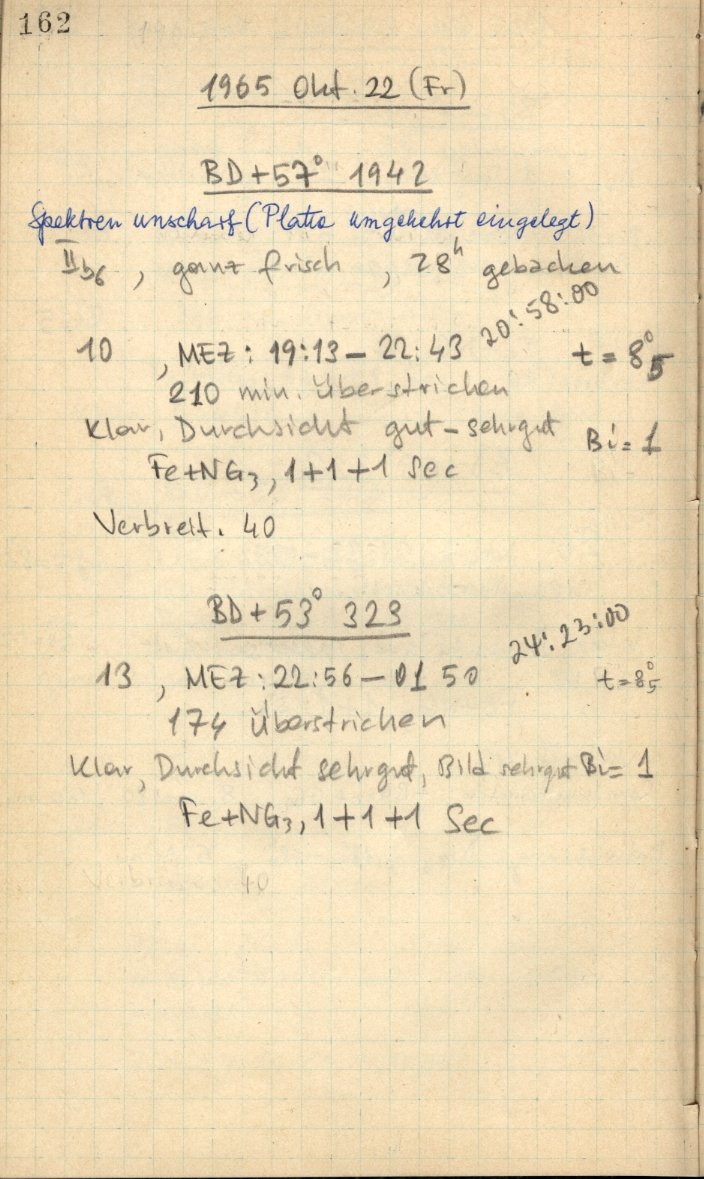 162
1965 Okt. 22 (Fr)
BD+57° 1942
Spektren unscharf (Platte umgekehrt eingelegt)
IIb6, ganz frisch, 28h gebacken
10, MEZ: 19:13 – 22:43 20:58:00 t = 8°5
210 min. Überstrichen
Klar, Durchsicht gut–sehrgut Bi = 1
Fe+NG3, 1+1+1 Sec
Verbreit. 40
BD+53° 323
13, MEZ: 22:56 – 01 50 24:23:00 t = 8°5
174 Überstrichen
Klar, Durchsicht sehrgut, Bild sehrgut Bi = 1
Fe+NG3, 1+1+1 Sec
40